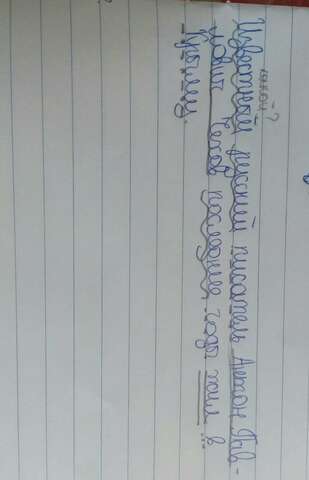 какой?
Известный русский писатель Антон Пав-
лович Чехов последние годы жил в
Крыму.